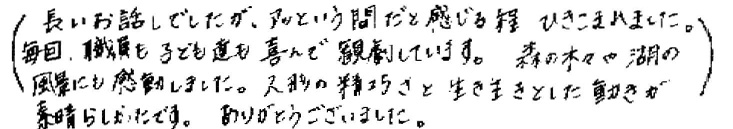 長いお話しでしたが、アッという間だと感じる程 ひきこまれました。
毎回、職員も子ども達も喜んで観劇しています。 森の木々や湖の
風景にも感動しました。人形の精巧さと生き生きとした動きが
素晴らしかったです。 ありがとうございました。